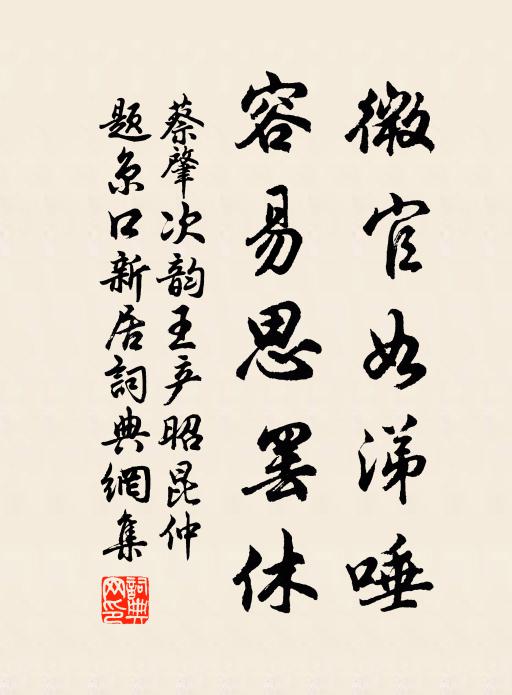 微官如涕唾
容易思罢休
蔡肇次韵王彦昭昆仲
题京口新居詞典網集
詞典网印